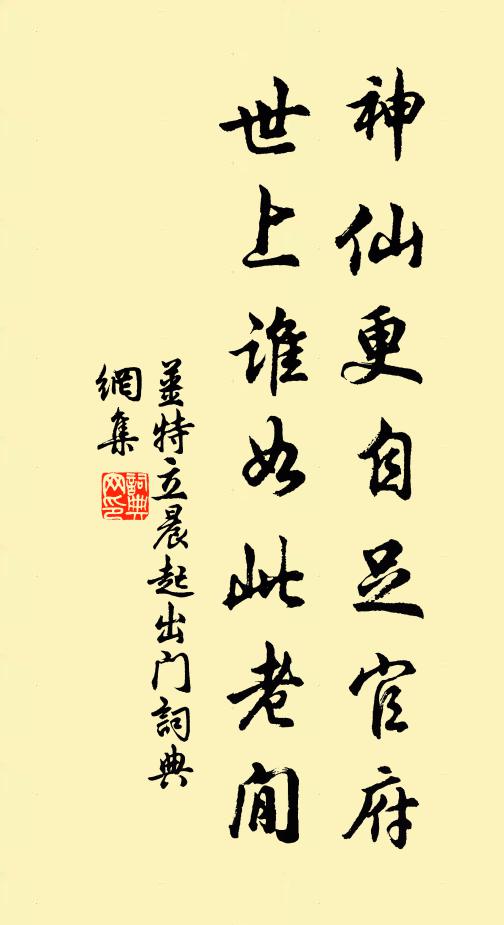 神仙更自足官府
世上谁如此老閒
姜特立晨起出门詞典
網集
詞典网印